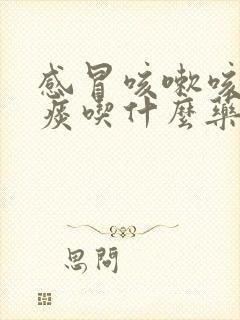 感冒咳嗽咳
痰喫什麼藥
思問